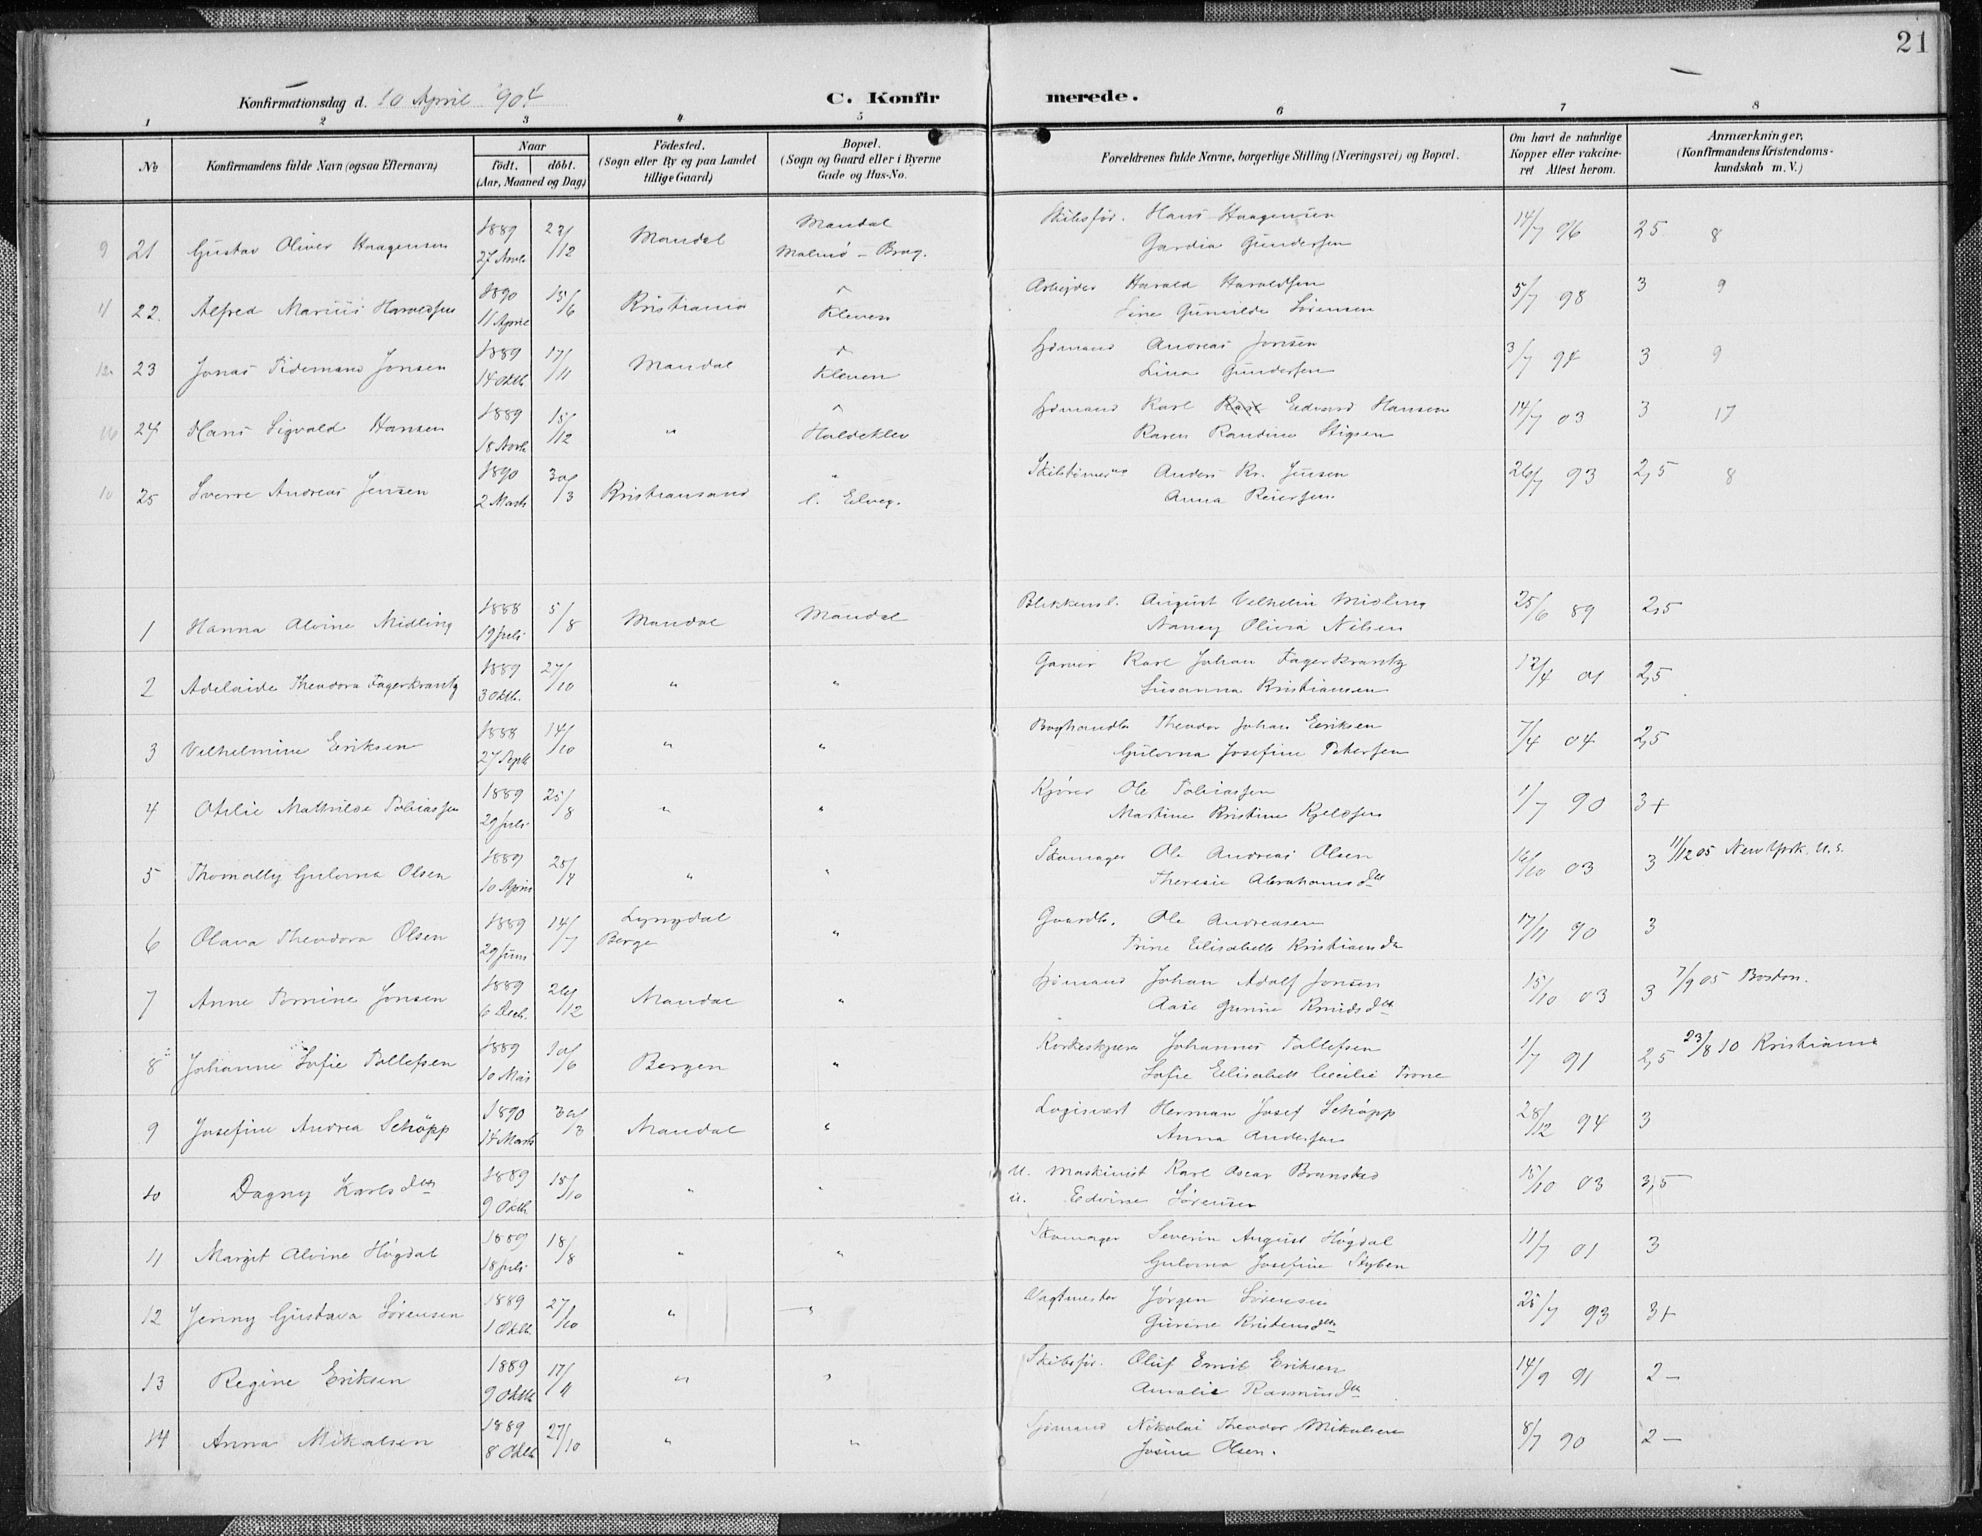 21
Konfirmationsdag d. 10 April 1904 C. Konfirmerede.
1 2 3 4 5 6 7 8
No Konfirmandens fulde Navn (ogsaa Efternavn) Naar Födt. döbt. (Aar, Maaned og Dag) Födested. (Sogn eller By og paa Landet tillige Gaard) Bopæl. (Sogn og Gaard eller i Byerne Gade og Hus-No. Forældrenes fulde Navne, borgerlige Stilling (Næringsvei) og Bopæl. Om havt de naturlige Kopper eller vakcineret Attest herom. Anmærkninger. (Konfirmandens Kristendomskundskab m. V.)
9 21 Gustav Oliver Haagensen 1889 27 Novb 29/12 Mandal Mandal Malmø - Brog. Skibsfør. Hans Haagensen 14/7 96 25 8
Gardia Gundersen
11 22. Alfred Marius Haraldsen 1890 11 April 15/6 Kristiania Kleven Arbejder Harald Haraldsen 5/7 98 3 9
Line Gunilde Sörensen
12 23 Jonas Tidemand Jonsen 1889 14 Oktb 17/11 Mandal Kleven Sjömand Andreas Jonsen 3/7 94 3 9
Lina Gundersen
16 24 Hans Sigvald Hansen 1889 18 Novb 15/12 " Haldeklev Sjömand Karl Edvard Hansen 14/7 03 3 17
Karen Randine Stigsen
10 25 Sverre Andreas Jensen 1890 2 Marts 30/3 Kristiansand " l. Elveg. Anders Kr. Jensen 26/7 93 2,5 8
Anna Reiersen
1 Hanna Alvine Midling 1888 19 Juli 5/8 Mandal Mandal Blikkensl. August Vilhelm Midling 25/6 89 2,5
Nancy Olivia Nilsen
2 Adelaide Theodora Fagerkrantz 1889 3 Oktb. 27/10 " " Garver Karl Johan Fagerkrantz 12/4 01 2,5
Susanna Kristiansen
3 Vilhelmine Eriksen 1888 27 Septb 14/10 " " Boghandler Theodor Johan Eriksen 7/4 04 2,5
Gulovna Josefine Petersen
4 Otilie Mathilde Tobiassen 1889 29 Juli 25/8 " " Kjörer Ole Tobiassen 1/7 90 3+
Martine Kristine Kjeldsen
5 Thomally Gulovna Olsen 1889 10 April 28/4 " " Skomager Ole Andreas Olsen 16/10 03 3 11/12 05 New York. U.S.
Theresie Abrahamsdtr
6 Olava Theodora Olsen 1889 29 Juni 14/7 Lyngdal Berge " Gaardb. Ole Andreasen 17/11 90 3
Trine Elisabeth Kristiansdtr
7 Anne Tomine Jonsen 1889 6 Decb. 26/12 Mandal " Sjömand Johan Adolf Jonsen 15/10 03 3 7/9 05 Boston.
Aase Gurine Knudsdtr
8 Johanne Sofie Tollefsen 1889 10 Mai 10/6 Bergen " Korkeskjærer Johannes Tollefsen 1/7 91 2,5 23/8 10 Kristiania
Sofie Elisabeth Cecilie Trone
9 Josefine Andrea Schöpp 1890 14 Marts 30/3 Mandal " Logisvært Herman Josef Schöpp 28/12 94 3
Anna Andersen
10 Dagny Karlsdtr 1889 9 Oktb. 18/10 " " U. Maskinist Karl Oscar Branstad 15/10 03 3,5
u. Edvine Sørensen
11 Margit Alvine Høgdal 1889 18 Juli 18/8 " " Skomager Severin August Høgdal 11/7 01 3
Gulovna Josefine Styben
12 Jenny Gustava Sørensen 1889 1 Oktb. 27/10 " " Vagtmester Jörgen Sörensen 25/7 93 3+
Gurine Kristensdtr
13 Regine Eriksen 1889 9 Oktb 17/11 " " Skibsfør. Oluf Emil Eriksen 14/9 91 2-
Amalie Rasmusdtr
14 Anna Mikalsen 1889 8 Oktb 27/10 " " Sjömand Nikolai Theodor Mikalsen 8/7 90 2-
Josine Olsen.